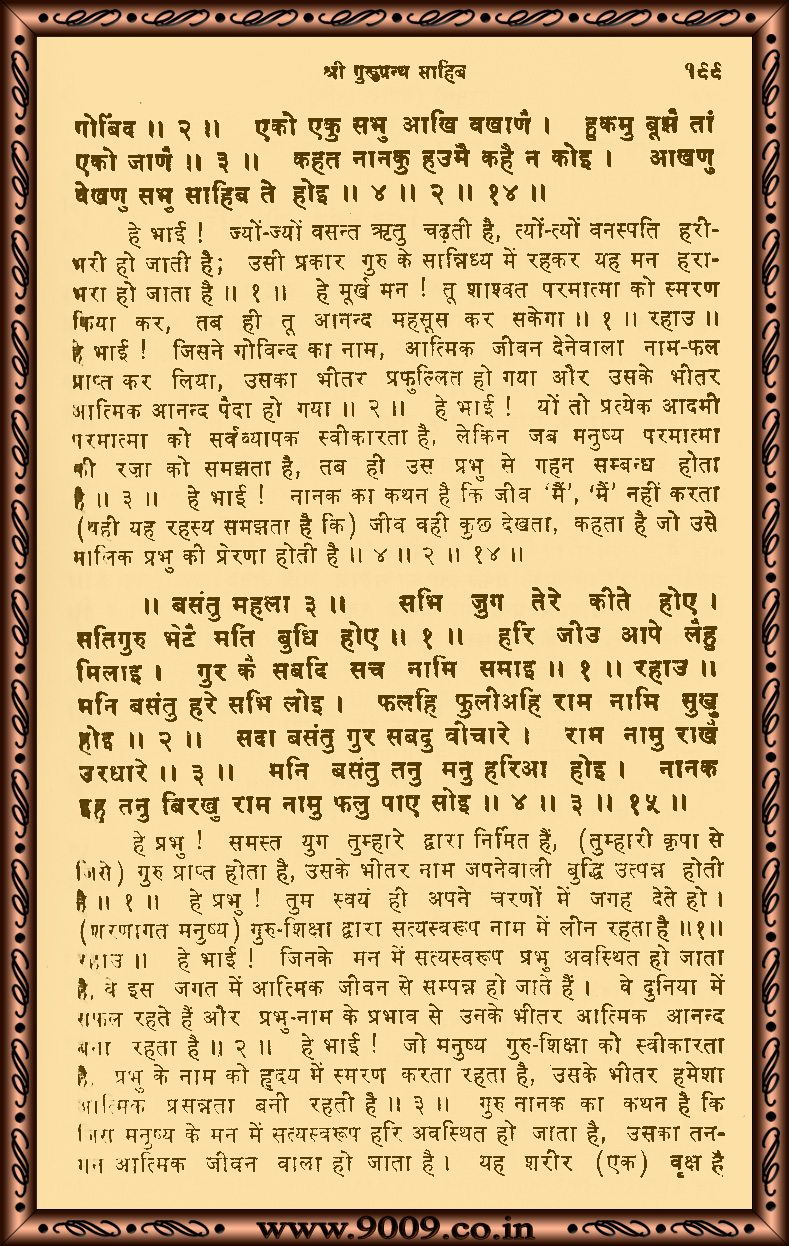 श्री गुरूग्रन्थ साहिब १९९
गोबिंद ॥ २ ॥ एको एकु सभु आखि वखाणै । हुकमु बूझै तां
एको जाणै ॥ ३ ॥ कहत नानकु हउमै कहै न कोइ । आखणु
वेखणु सभु साहिब ते होइ ॥ ४ ॥ २ ॥ १४ ॥
हे भाई ! ज्यों-ज्यों वसन्त ऋतु चढ़ती है, त्यों-त्यों वनस्पति हरी-
भरी हो जाती है; उसी प्रकार गुरु के सान्निध्य में रहकर यह मन हरा-
भरा हो जाता है ॥ १ ॥ हे मूर्ख मन ! तू शाश्वत परमात्मा को स्मरण
किया कर, तब ही तू आनन्द महसूस कर सकेगा ॥ १ ॥ रहाउ ॥
हे भाई ! जिसने गोविन्द का नाम, आत्मिक जीवन देनेवाला नाम-फल
प्राप्त कर लिया, उसका भीतर प्रफुल्लित हो गया और उसके भीतर
आत्मिक आनन्द पैदा हो गया ॥ २ ॥ हे भाई ! यों तो प्रत्येक आदमी
परमात्मा को सर्वव्यापक स्वीकारता है, लेकिन जब मनुष्य परमात्मा
की रज़ा को समझता है, तब ही उस प्रभु से गहन सम्बन्ध होता
है ॥ ३ ॥ हे भाई ! नानक का कथन है कि जीव ‘मैं’, ‘मैं’ नहीं करता
(वही यह रहस्य समझता है कि) जीव वही कुछ देखता, कहता है जो उसे
मालिक प्रभु की प्रेरणा होती है ॥ ४ ॥ २ ॥ १४ ॥
॥ बसंतु महला ३ ॥ सभि जुग तेरे कीते होए ।
सतिगुरु भेटै मति बुधि होए ॥ १ ॥ हरि जीउ आपे लैहु
मिलाइ । गुर कै सबदि सच नामि समाइ ॥ १ ॥ रहाउ ॥
मनि बसंतु हरे सभि लोइ । फलहि फुलीअहि राम नामि सुखु
होइ ॥ २ ॥ सदा बसंतु गुर सबदु वीचारे । राम नामु राखै
उरधारे ॥ ३ ॥ मनि बसंतु तनु मनु हरिआ होइ । नानक
इहु तनु बिरखु राम नामु फलु पाए सोइ ॥ ४ ॥ ३ ॥ १५ ॥
हे प्रभु ! समस्त युग तुम्हारे द्वारा निर्मित हैं, (तुम्हारी कृपा से
जिसे) गुरु प्राप्त होता है, उसके भीतर नाम जपनेवाली बुद्धि उत्पन्न होती
है ॥ १ ॥ हे प्रभु ! तुम स्वयं ही अपने चरणों में जगह देते हो ।
(शरणागत मनुष्य) गुरु-शिक्षा द्वारा सत्यस्वरूप नाम में लीन रहता है ॥१॥
रहाउ ॥ हे भाई ! जिनके मन में सत्यस्वरूप प्रभु अवस्थित हो जाता
है, वे इस जगत में आत्मिक जीवन से सम्पन्न हो जाते हैं । वे दुनिया में
सफल रहते हैं और प्रभु-नाम के प्रभाव से उनके भीतर आत्मिक आनन्द
बना रहता है ॥ २ ॥ हे भाई ! जो मनुष्य गुरु-शिक्षा को स्वीकारता
है, प्रभु के नाम को हृदय में स्मरण करता रहता है, उसके भीतर हमेशा
आत्मिक प्रसन्नता बनी रहती है ॥ ३ ॥ गुरु नानक का कथन है कि
जिस मनुष्य के मन में सत्यस्वरूप हरि अवस्थित हो जाता है, उसका तन-
मन आत्मिक जीवन वाला हो जाता है । यह शरीर (एक) वृक्ष है
www.9009.co.in